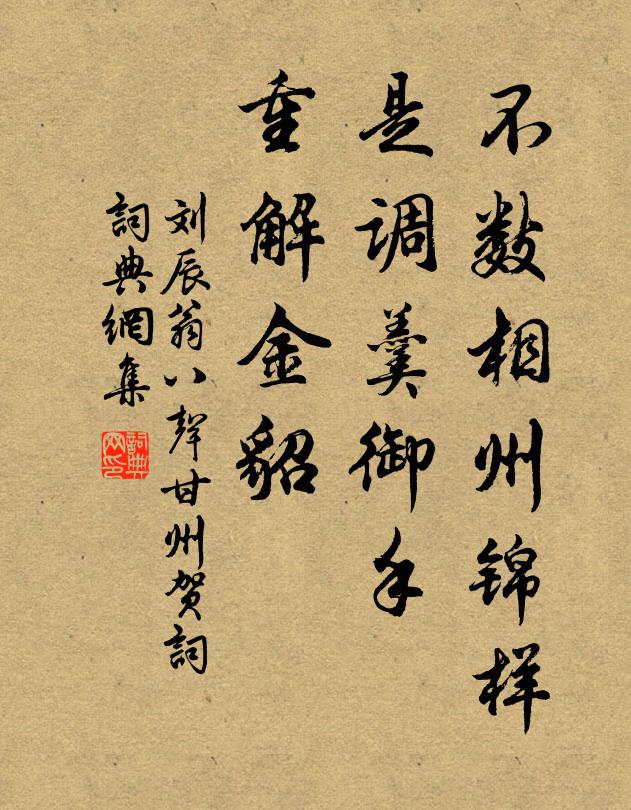 不数相州锦样
是调羹御手
重解金貂
刘辰翁八聲甘州贺詞
詞典網集
詞典网印